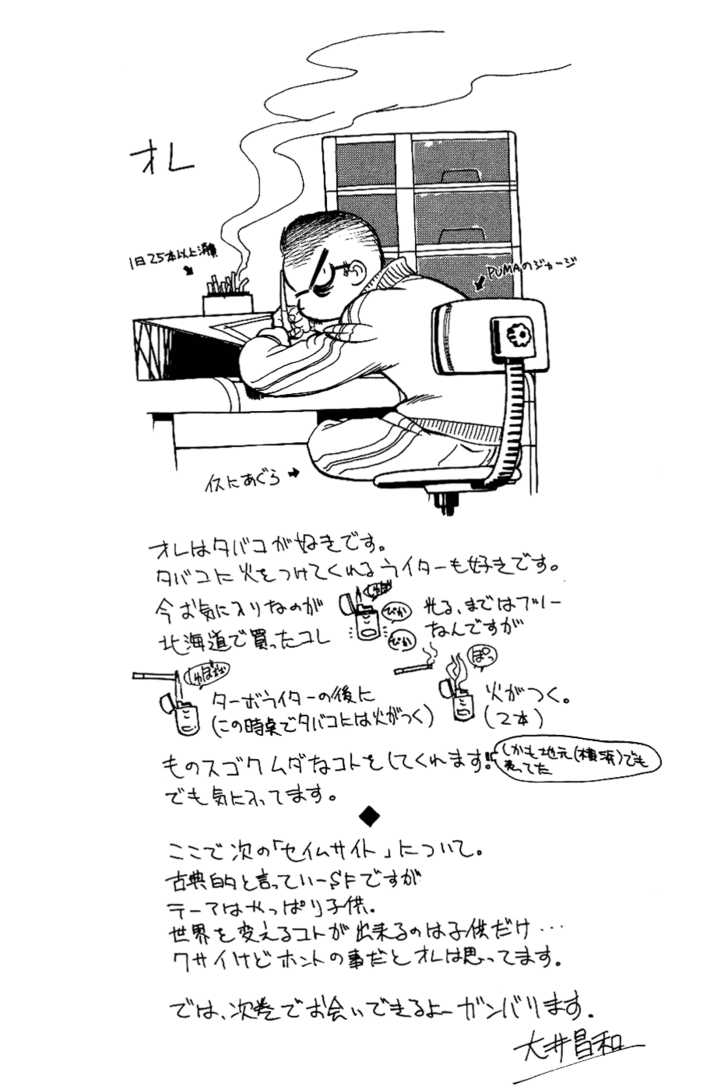 オレ
1日25本以上消費
PUMAのジャージ
イスにあぐら
オレはタバコが好きです。
タバコに火をつけてくれるライターも好きです。
今お気に入りなのが
北海道で買ったコレ
ぴか
ぴか
光る、まではフリー
なんですが
ターボライターの後に
(この時点でタバコには火がつく)
ぽっ
火がつく。
(2本)
ものスゴクムダなコトをしてくれます。
しかも地元(横浜)でも
売ってた
でも気に入ってます。
◆
ここで次の「セイムサイト」について。
古典的と言っていーSFですが
テーマはやっぱり子供。
世界を変えるコトが出来るのは子供だけ…
クサイけどホントの事だとオレは思ってます。
では、次巻でお会いできるよーガンバります。
大井昌和